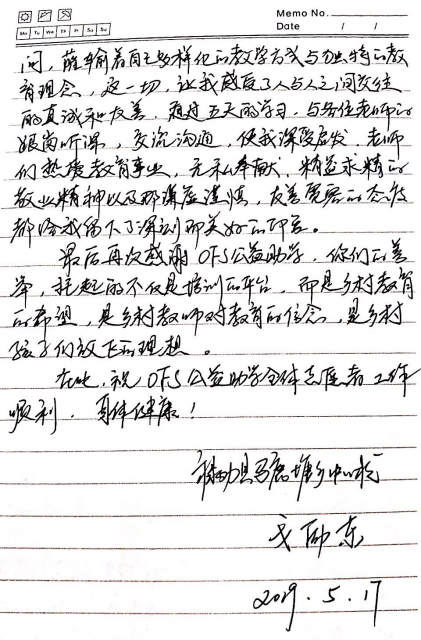 Memo No.
Date / /
Mo Tu We Th Fr Sa Su
问，薛输着自己多样化的教学方式与独特的教
育理念，这一切，让我感受了人与人之间交往
的真诚和友善，通过五天的学习，与各位老师的
跟岗听课，交流沟通，使我深受启发，老师
们热爱教育事业，无私奉献，精益求精的
敬业精神以及那谦虚谨慎，友善宽容的态度
都给我留下了深刻而美好的印象。
最后再次感谢OFS公益助学，你们的善
举，托起的不仅是培训的平台，而是乡村教育
的希望，是乡村教师对教育的信念，是乡村
孩子们放飞的理想。
在此，祝OFS公益助学全体志愿者工作
顺利，身体健康！
禄劝县马鹿塘乡中心校
2019.5.17